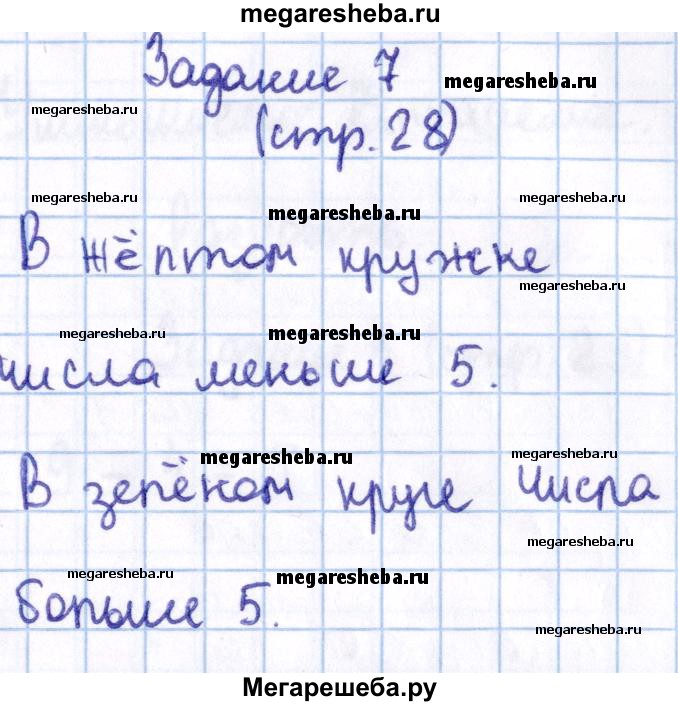 megaresheba.ru
Задание 7
megaresheba.ru
megaresheba.ru
(стр. 28)
megaresheba.ru
megaresheba.ru
megaresheba.ru
В жёлтом кружке
megaresheba.ru
megaresheba.ru
megaresheba.ru
megaresheba.ru
числа меньше 5.
megaresheba.ru
megaresheba.ru
В зелёном круге числа
megaresheba.ru
megaresheba.ru
megaresheba.ru
больше 5.
megaresheba.ru
Мегарешеба.ру